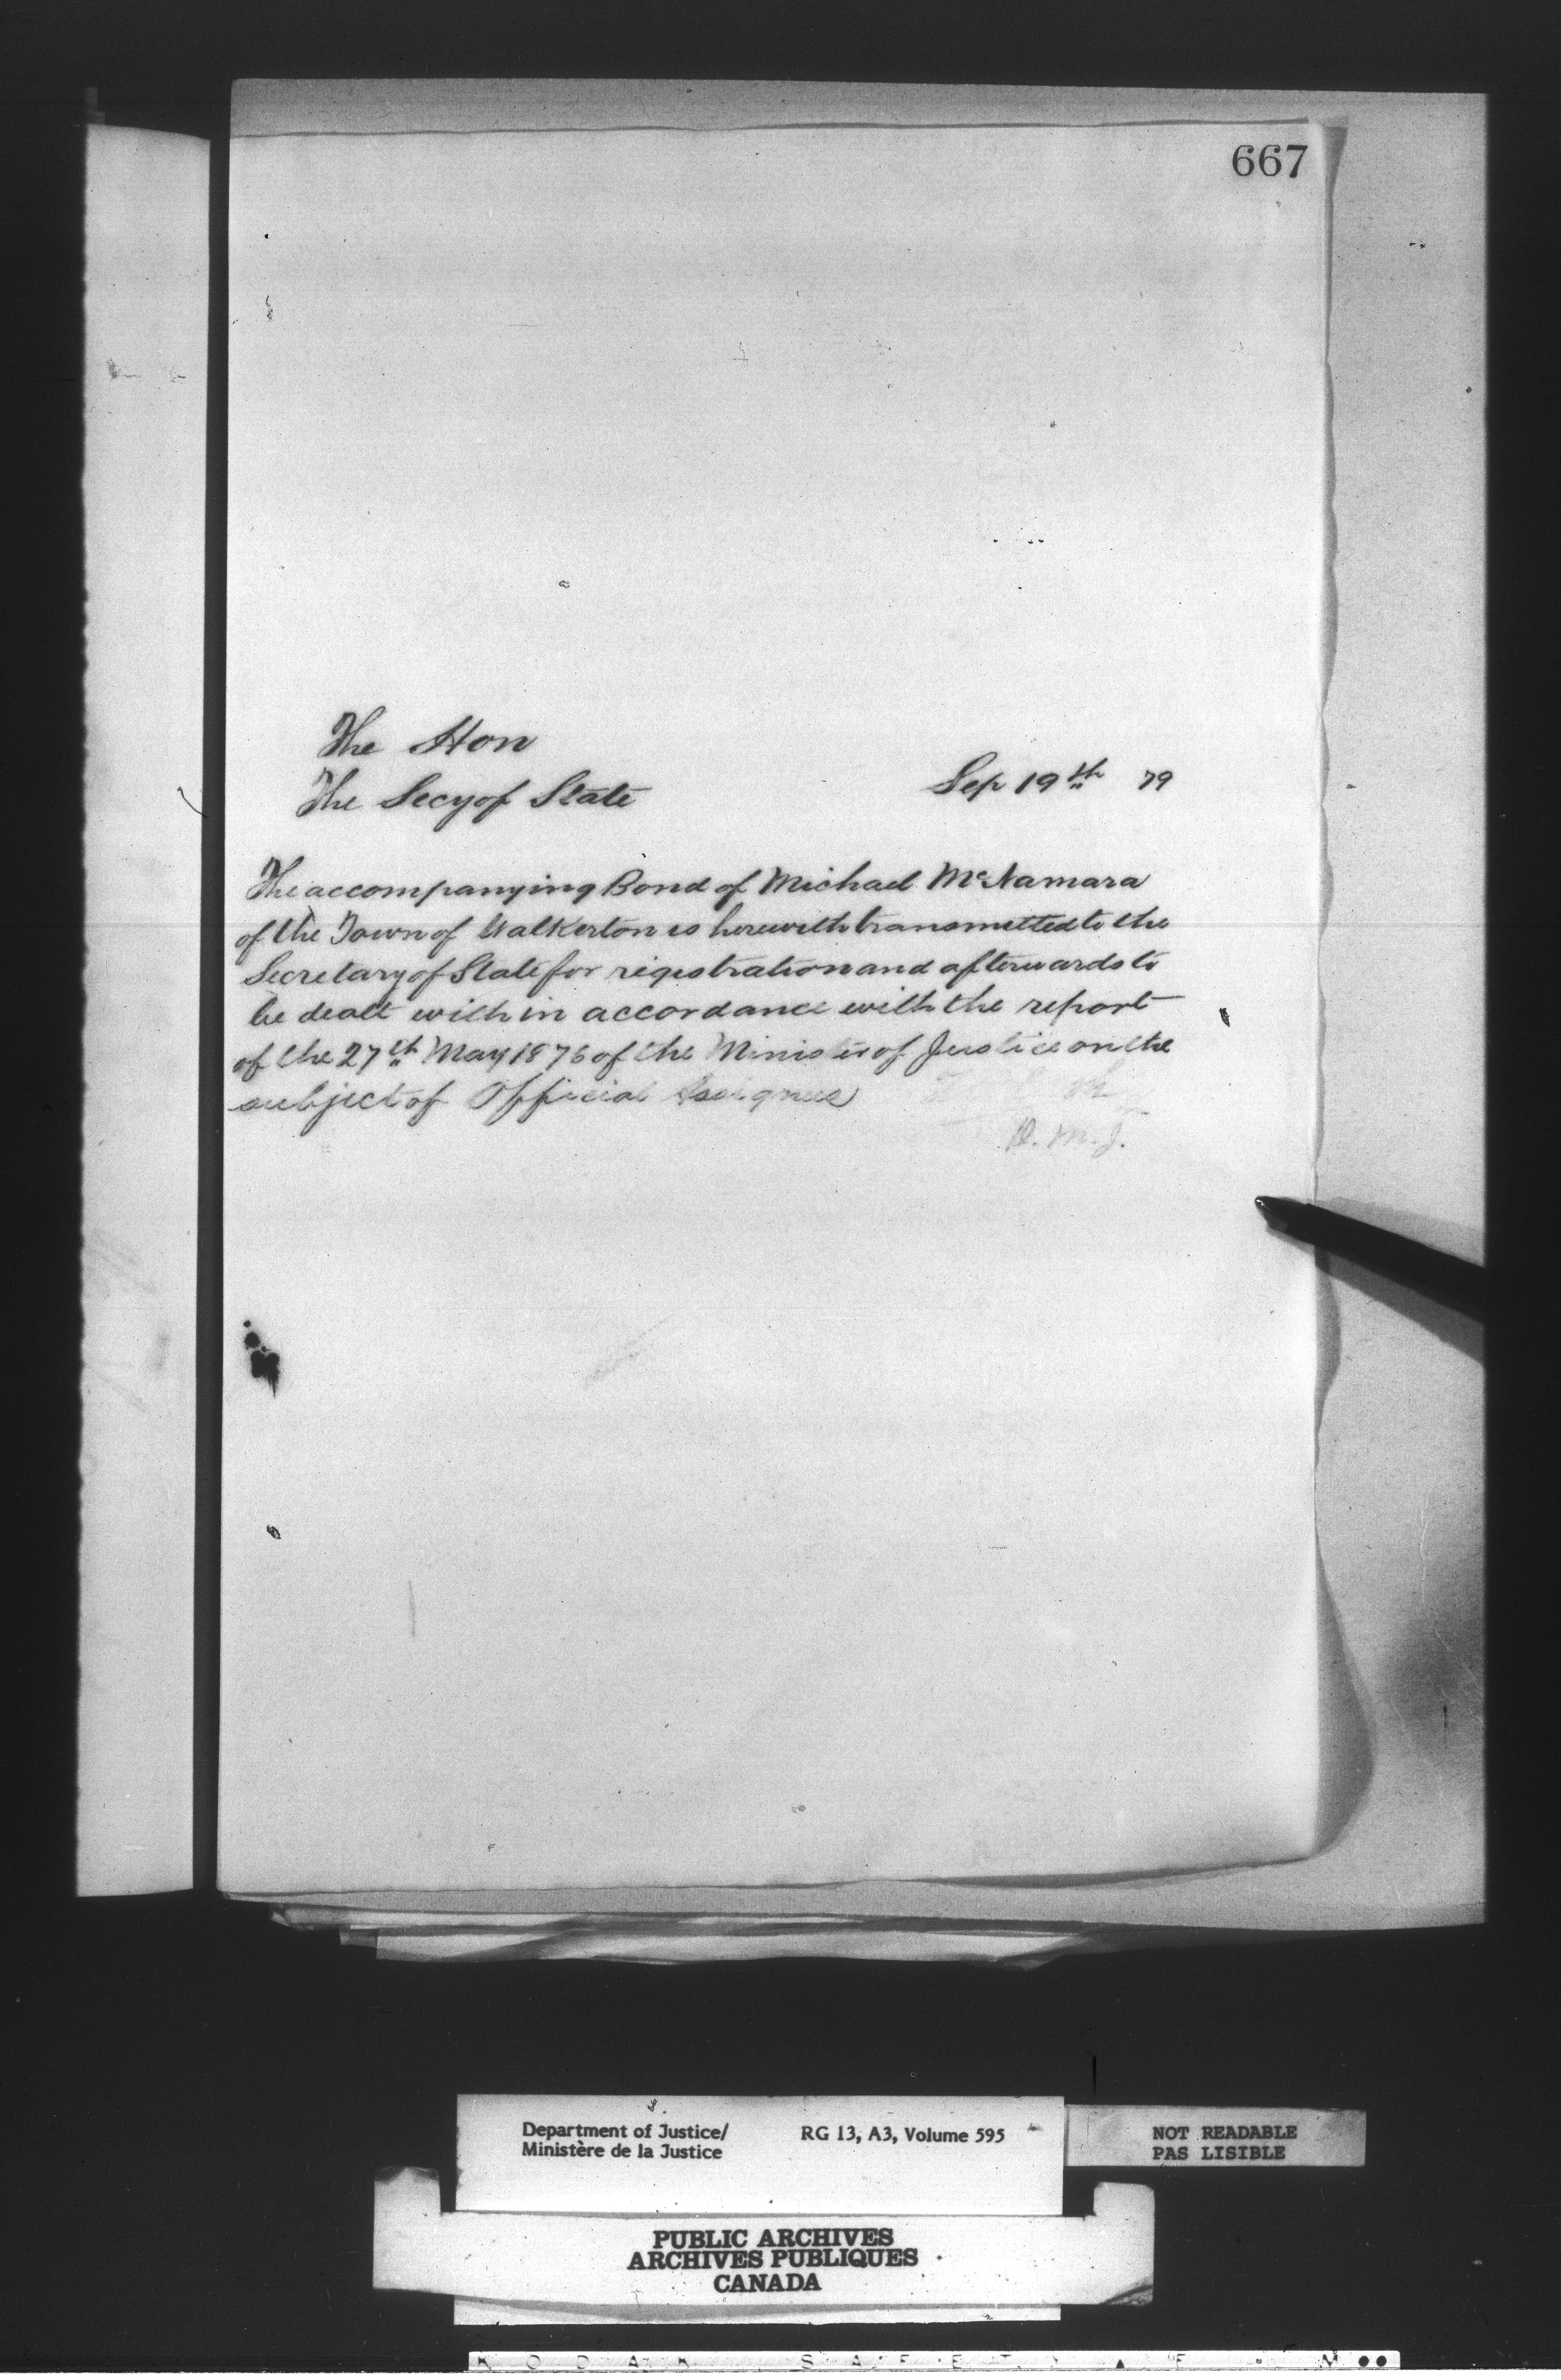 667
The Hon
The Secy of State Sep 19th 79
The accompanying Bond of Michael McNamara
of the Town of Walkerton is herewith transmitted to the
Secretary of State for registration and afterwards to
be dealt with in accordance with the report
of the 27th May 1876 of the Minister of Justice on the
subject of Official Assignees
D. M. J.
Department of Justice/
Ministère de la Justice
RG 13, A3, Volume 595
NOT READABLE
PAS LISIBLE
PUBLIC ARCHIVES
ARCHIVES PUBLIQUES
CANADA